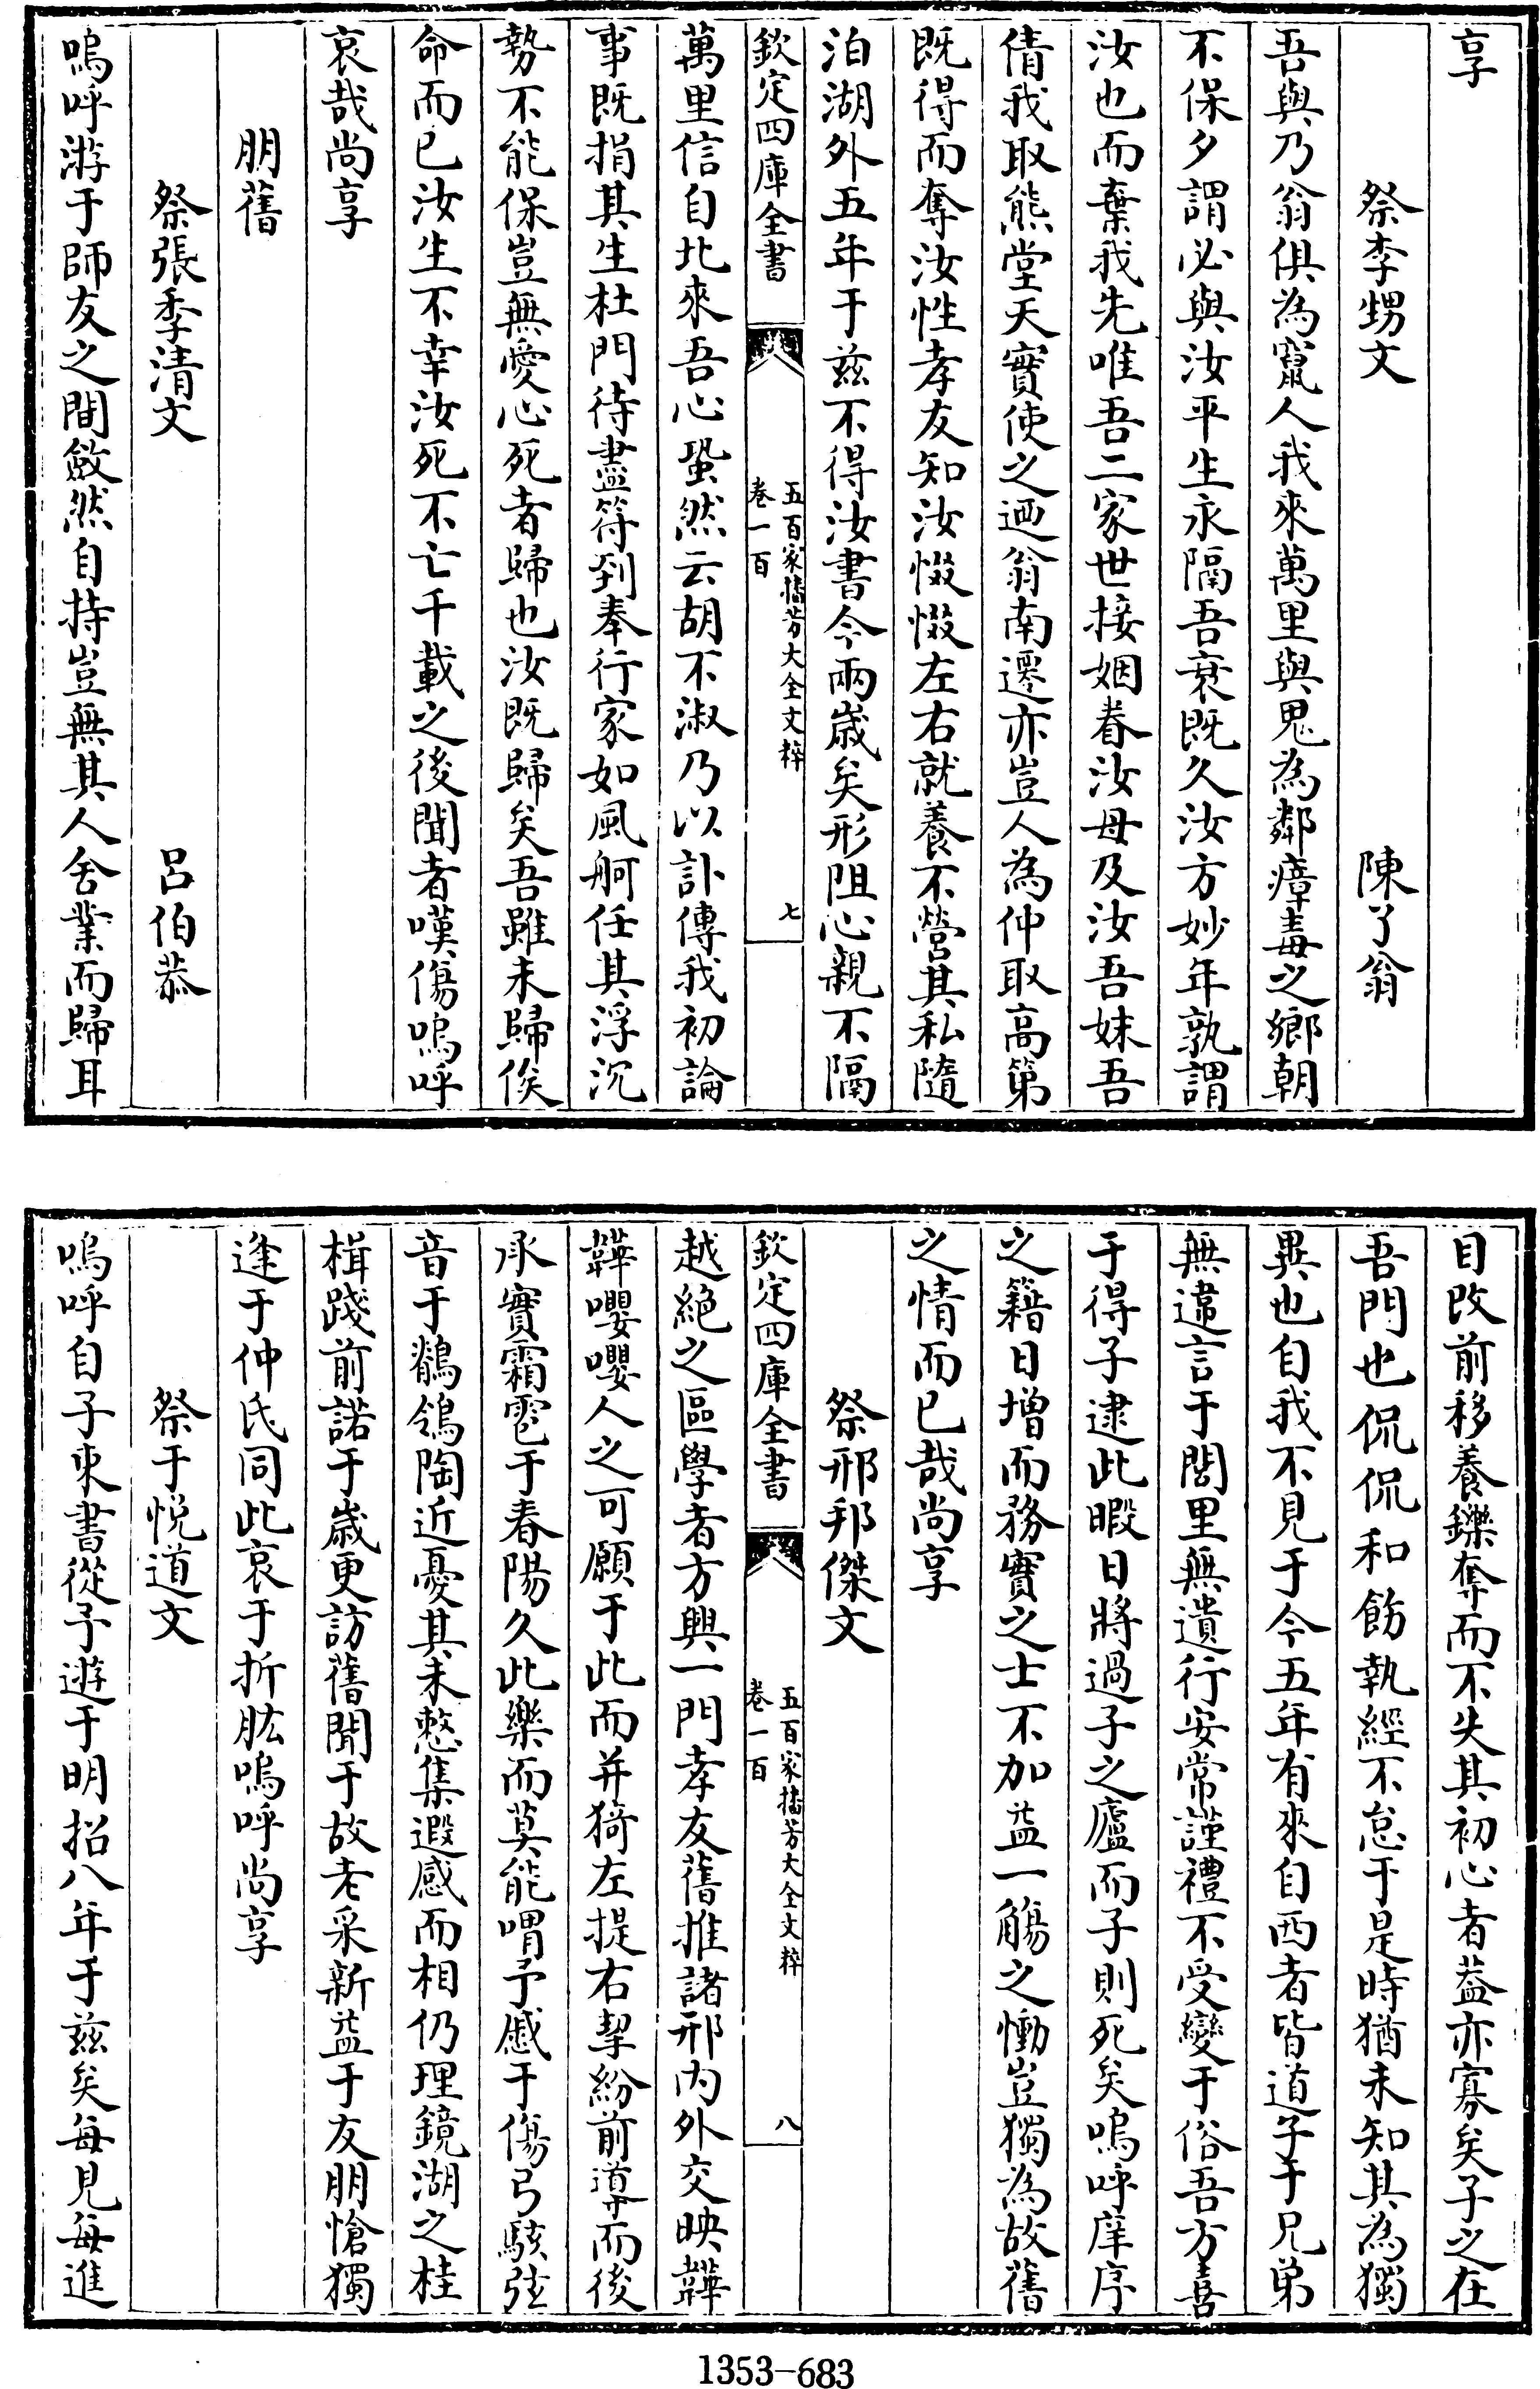 享
祭李甥文 陳了翁
吾與乃翁俱為竄人我來萬里與鬼為鄰瘴毒之鄉朝
不保夕謂必與汝平生永隔吾衰既久汝方妙年孰謂
汝也而棄我先唯吾二家世接姻眷汝母及汝吾妹吾
倩我取熊堂天實使之迺翁南遷亦豈人為仲取高第
既得而奪汝性孝友知汝惙惙左右就養不營其私隨
泊湖外五年于兹不得汝書今兩歲矣形阻心親不隔
欽定四庫全書 五百家播芳大全文粹 卷一百 七
萬里信自北來吾心蛩然云胡不淑乃以訃傳我初論
事既捐其生杜門待盡符到奉行家如風舸任其浮沉
勢不能保豈無愛心死者歸也汝既歸矣吾雖未歸俟
命而已汝生不幸汝死不亡千載之後聞者嘆傷嗚呼
哀哉尚享
朋舊
祭張季清文 呂伯恭
嗚呼游于師友之間斂然自持豈無其人舍業而歸耳
目改前移養鑠奪而不失其初心者葢亦寡矣子之在
吾門也侃侃和飭執經不怠于是時猶未知其為獨
異也自我不見于今五年有來自西者皆道子于兄弟
無違言于閭里無遺行安常謹禮不受變于俗吾方喜
于得子逮此暇日將過子之廬而子則死矣嗚呼庠序
之籍日增而務實之士不加益一觴之慟豈獨為故舊
之情而已哉尚享
祭邢邦傑文
欽定四庫全書 五百家播芳大全文粹 卷一百 八
越絶之區學者方興一門孝友舊推諸邢内外交映韡
韡嚶嚶人之可願于此而并猗左提右挈紛前導而後
承實霜雹于春陽久此樂而莫能喟予慼于傷弓駭弦
音于鶺鴒陶近憂其未愸集遐感而相仍理鏡湖之桂
楫踐前諾于歲更訪舊聞于故老采新益于友朋愴獨
逢于仲氏同此哀于折肱嗚呼尚享
祭于悦道文
嗚呼自子束書從予遊于明招八年于兹矣每見每進
1353-683